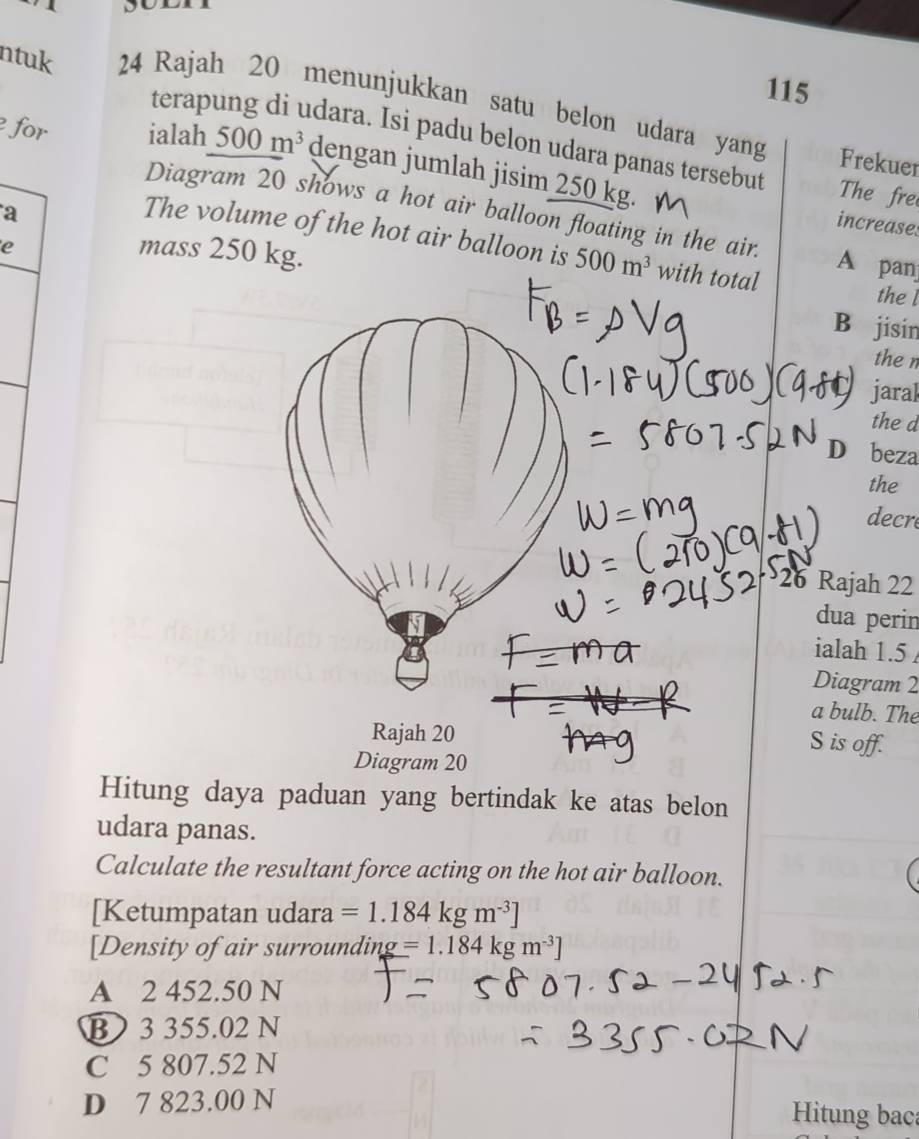 ntuk
e for
a
e
115
24 Rajah 20 menunjukkan satu belon udara yang
terapung di udara. Isi padu belon udara panas tersebut
ialah 500 m³ dengan jumlah jisim 250 kg. M
Diagram 20 shows a hot air balloon floating in the air.
The volume of the hot air balloon is 500 m³ with total
mass 250 kg.
F_B = ρVg
(1.184)(500)(9.81)
= 5807.52N
W = mg
W = (250)(9.81)
W = 2452.5N
F = ma
F = W - R
mg
Rajah 20
Diagram 20
Hitung daya paduan yang bertindak ke atas belon
udara panas.
Calculate the resultant force acting on the hot air balloon.
[Ketumpatan udara = 1.184 kg m⁻³]
[Density of air surrounding = 1.184 kg m⁻³]
A 2 452.50 N
B 3 355.02 N
C 5 807.52 N
D 7 823.00 N
F = 5807.52 - 2452.5
= 3355.02N
Frekuen
The fre
increases
A pan
the l
B jisin
the
jarak
the d
D beza
the
decre
26 Rajah 22
dua perin
ialah 1.5
Diagram 2
a bulb. The
S is off.
Hitung baca